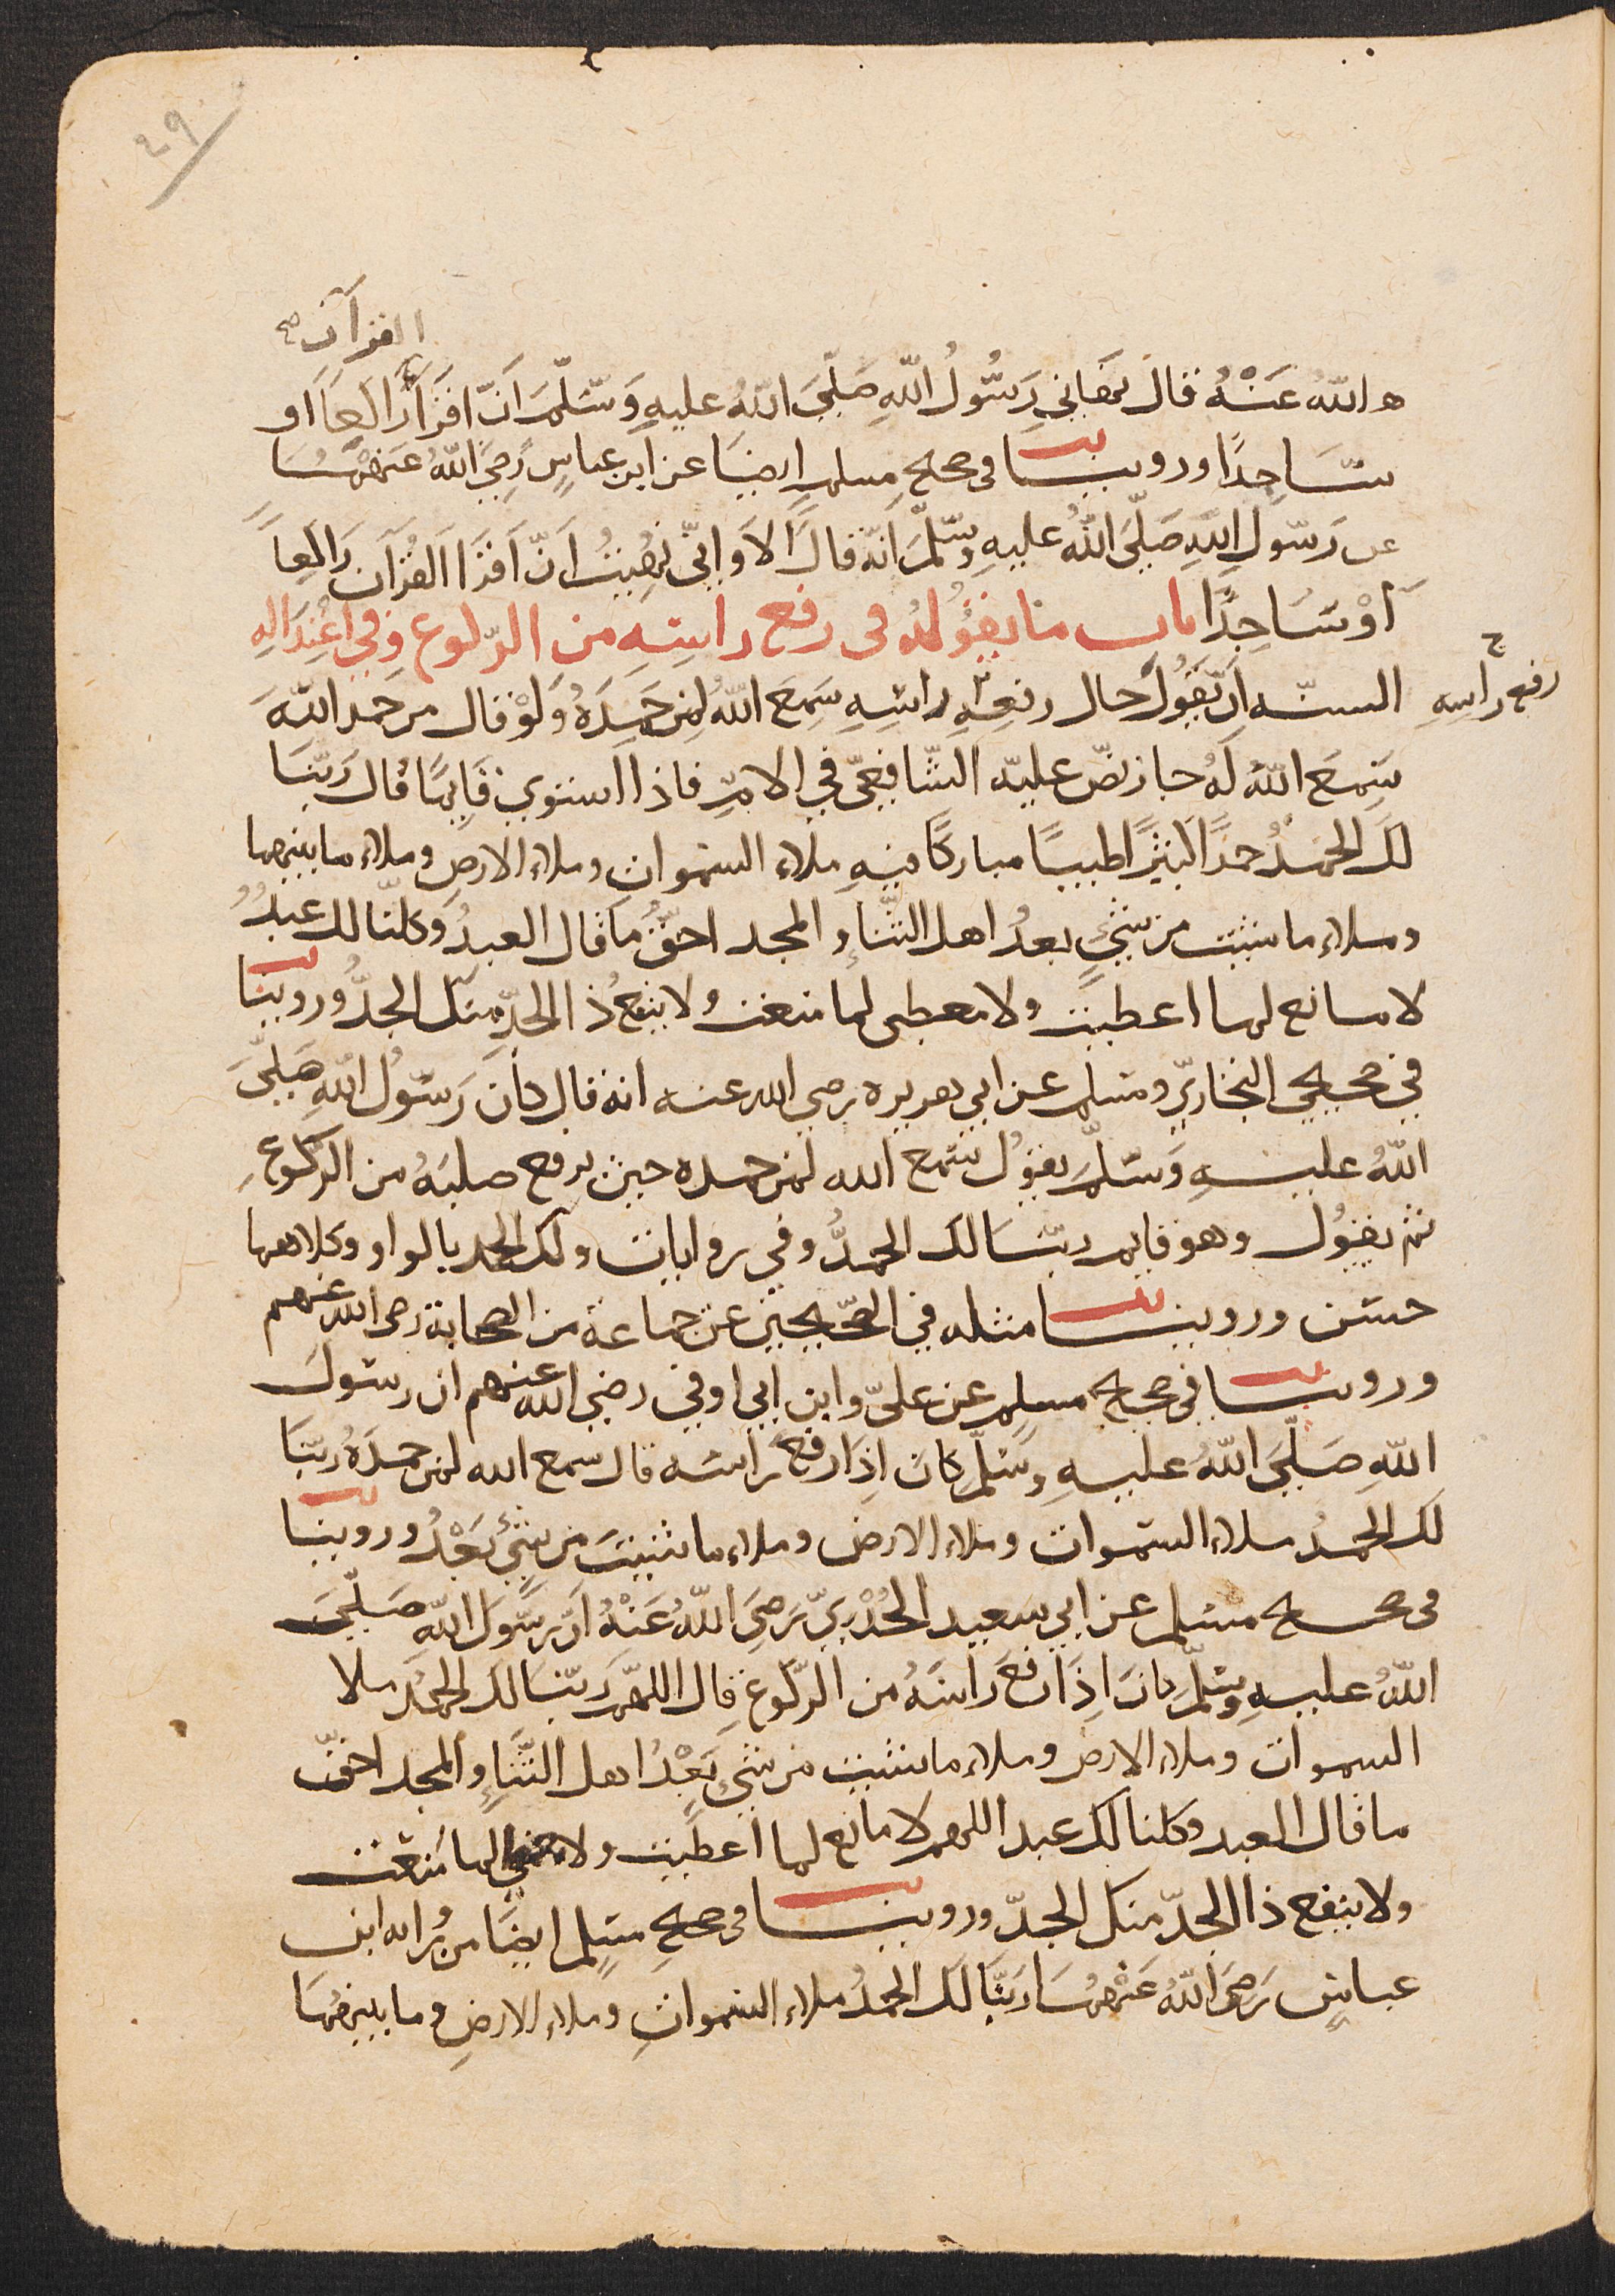 ٢٩
القرآن صح
ه الله عَنْهُ قال نهَاني رَسُولُ اللهِ صَلّيَ اللهُ عليهِ وَسَلّمَ اَنّ اقرَأ رَاكِعًا او
سَاجِدًا وروينا فى صحيحِ مسلمٍ ايضا عن ابن عباسٍ رَضِيَ اللهُ عَنهُمَا
عن رَسولِ اللهِ صَلّيَ اللهُ عليهِ وسَلّمَ انّه قالَ اَلاَ وَاِنّي نُهِيتُ اَنّ اَقرَا القُرآنَ رَاكِعًا
اَوْ سَاجِدًا باب ما يقُولُهُ فى رفع راسِهِ من الرّكوع وَفي اعْتِدَالِهِ
رفع رأسِهِ
السنّه اَن يّقُولَ حال رفعِهِ راسِهِ سَمِعَ اللهُ لِمَن حَمِدَهُ وَلَوْ قال من حَمد اللهَ
سَمِعَ اللهُ لَهُ جاز نصّ عليه الشّافِعيّ فِي الامّ فاذا استوي قَايمًا قال رَبّنَا
لكَ الحَمدُ حمدًا كثيرًا طيبًا مباركًا فيهِ ملاء السّموات وملاء الارضِ وملاء ما بينهما
وملاء ما شئت من شيءٍ بعدُ اهل الثّناءِ والمجد احقُّ ما قال العبدُ وَكلّنا لك عبدُ
لا مانع لما اعطيت ولا معطى لما منعت ولا ينفعُ ذا الجدِّ منك الجدُّ وروينا
في صحيحي البخاريّ ومسلم عن ابي هريره رضي الله عنه انه قال كَانَ رَسُولُ اللهِ صَلّيَ
اللهُ عليهِ وَسَلّمَ يقولُ سمع الله لمن حمده حين يرفع صلبَهُ من الركوعِ
ثم يقولُ وهو قايم ربّنا لك الحمدُ وفي روايات ولك الحمد بالواو وكلاهما
حسَن وروينا مثله في الصّحيحين عن جماعة من الصحابة رضى الله عنهم
وروينا فى صحيح مسلم عن عليّ وابن ابي اوفي رضي الله عنهم ان رسولَ
اللهِ صَلّيَ اللهُ عليهِ وسَلّمَ كانَ اِذَا رفع رَاسَه قال سمع الله لمن حمدَهُ ربّنَا
لك الحمدُ ملاء السّموات وملاء الارض وملاء ما شئتَ من شيءٍ بَعْدُ وروينا
فى صحيح مسلم عن ابي سعيد الخُدْرِيّ رَضِيَ اللهُ عَنْهُ اَنّ رَسُولَ اللهِ صَلّيَ
اللهُ عليهِ وسَلّمَ كانَ اِذَا رفعَ رَاسَهُ من الرّكوعِ قال اللهمّ رَبّنَا لك الحمدُ ملا
السموات وملاء الارض وملاء ما شئت من شيءٍ بَعْدُ اهل الثّنَاءِ والمجد احقّ
ما قال العبد وكلنا لك عبد اللهم لا مانع لما اعطيت ولا معطي لما منعت
ولا ينفع ذا الجدّ منك الجدّ وروينا فى صحيحِ مسلم ايضًا من رُوايه ابن
عباسٍ رَضِيَ اللهُ عَنْهُمَا رَبّنَا لك الحمدُ ملاء السّمواتِ وملاء الارضِ وما بينهُمَا